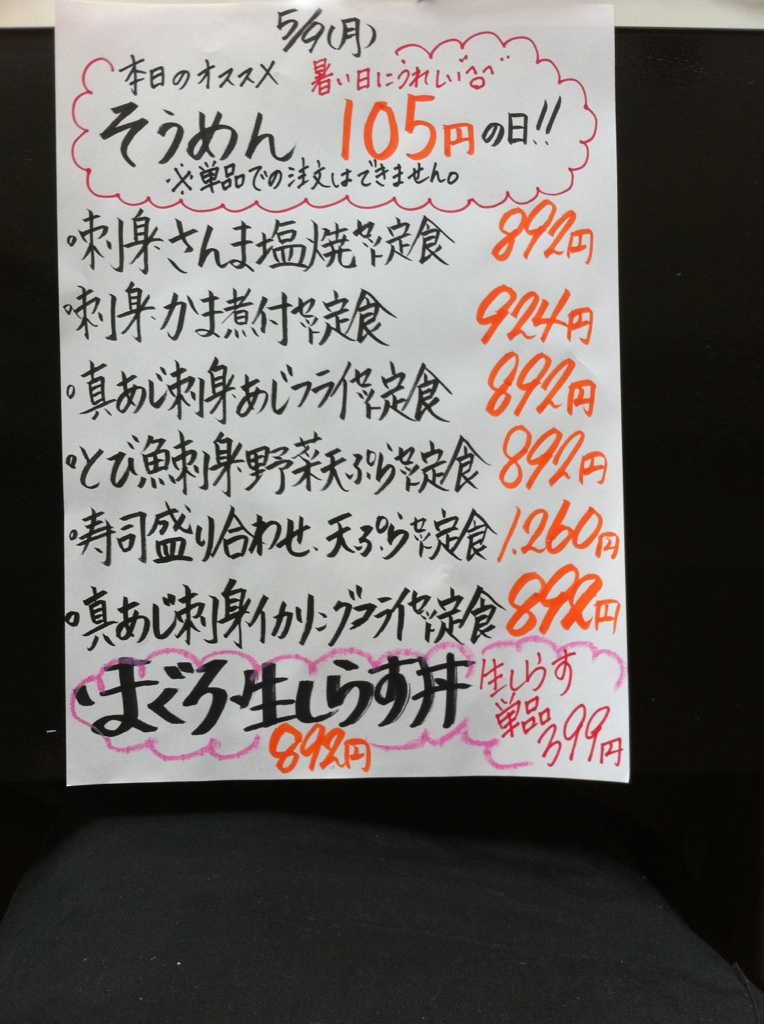 5/9(月)
本日のオススメ 暑い日にうれしい
そうめん 105円の日!!
※単品での注文はできません。
。刺身さんま塩焼セット定食 892円
。刺身かま煮付セット定食 924円
。真あじ刺身あじフライセット定食 892円
。とび魚刺身野菜天ぷらセット定食 892円
。寿司盛り合わせ、天ぷらセット定食 1,260円
。真あじ刺身イカリングフライセット定食 892円
まぐろ生しらす丼 892円
生しらす
単品
399円